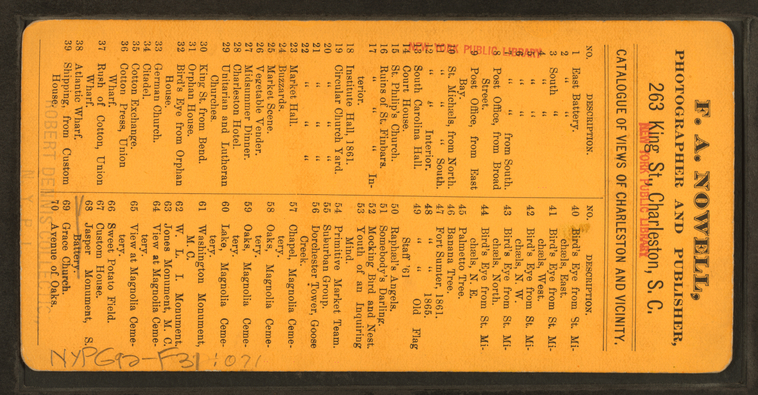 F. A. NOWELL,
PHOTOGRAPHER AND PUBLISHER,
263 King St., Charleston, S. C.
NEW YORK PUBLIC LIBRARY
CATALOGUE OF VIEWS OF CHARLESTON AND VICINITY.
NO. DESCRIPTION.
1 East Battery.
2 " "
3 South "
4 " " from South.
5 " "
6 " "
8 Post Office, from Broad
Street.
9 Post Office, from East
Bay.
10 St. Michaels, from North.
11 " " South.
12 " " Interior.
NEW YORK PUBLIC LIBRARY
13 South Carolina Hall.
14 Court House.
15 St. Philip's Church.
16 Ruins of St. Finbars.
17 " " " In-
terior.
18 Institute Hall, 1861.
19 Circular Church Yard.
20 " " "
21 " " "
22 " " "
23 Market Hall.
24 Buzzards.
25 Market Scene.
26 Vegetable Vender.
27 Midsummer Dinner.
28 Charleston Hotel.
29 Unitarian and Lutheran
Churches.
30 King St. from Bend.
31 Orphan House.
32 Bird's Eye from Orphan
House.
33 German Church.
34 Citadel.
35 Cotton Exchange.
36 Cotton Press, Union
Wharf.
37 Rush of Cotton, Union
Wharf.
38 Atlantic Wharf.
39 Shipping, from Custom
House.
NO. DESCRIPTION.
40 Bird's Eye from St. Mi-
chæls, East.
41 Bird's Eye from St. Mi-
chæls, West.
42 Bird's Eye from St. Mi-
chæls, N. W.
43 Bird's Eye from St. Mi-
chæls, North.
44 Bird's Eye from St. Mi-
chæls, N. E.
45 Palmetto Tree.
46 Banana Tree.
47 Fort Sumter, 1861.
48 " " 1865.
49 " " Old Flag
Staff '61
50 Raphael's Angels.
51 Somebody's Darling.
52 Mocking Bird and Nest.
53 Youth of an Inquiring
Mind.
54 Primitive Market Team.
55 Suburban Group.
56 Dorchester Tower, Goose
Creek.
57 Chapel, Magnolia Ceme-
tery.
58 Oaks, Magnolia Ceme-
tery.
59 Oaks, Magnolia Ceme-
tery.
60 Lake, Magnolia Ceme-
tery.
61 Washington Monument,
M. C.
62 W. L. I. Monument,
63 Jones Monument, M. C.
64 View at Magnolia Ceme-
tery.
65 View at Magnolia Ceme-
tery.
66 Sweet Potato Field.
67 Custom House.
68 Jasper Monument, S.
Battery
69 Grace Church.
70 Avenue of Oaks.
ROBERT DENNIS
NYPG92-F31:021